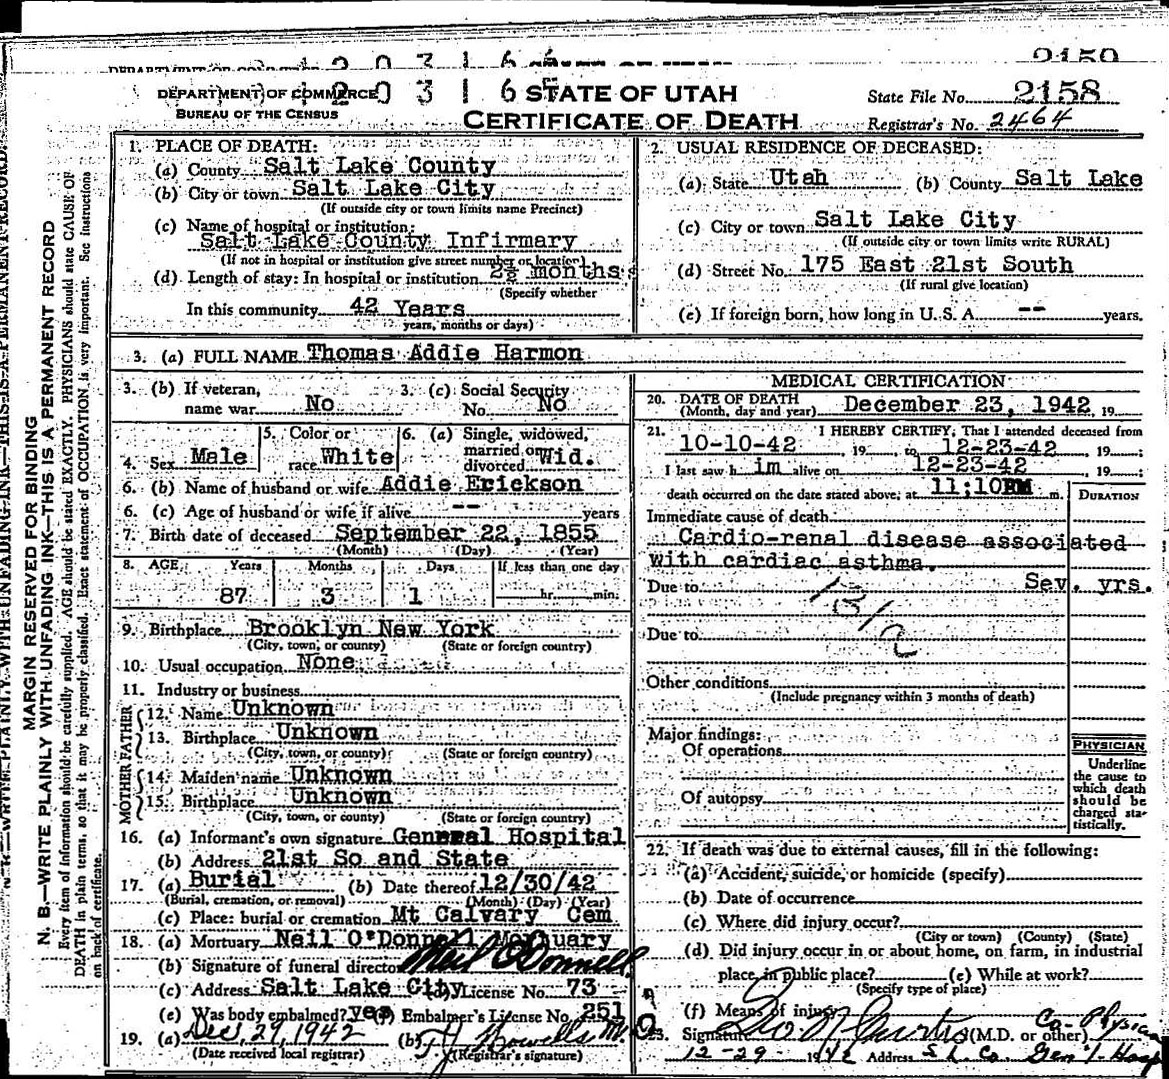 2159
DEPARTMENT OF COMMERCE
BUREAU OF THE CENSUS
1 2 0 3 1 6
STATE OF UTAH
CERTIFICATE OF DEATH
State File No. 2158
Registrar's No. 2464
MARGIN RESERVED FOR BINDING
N. B.—WRITE PLAINLY WITH UNFADING INK—THIS IS A PERMANENT RECORD
Every item of information should be carefully supplied. AGE should be stated EXACTLY. PHYSICIANS should state CAUSE OF
DEATH in plain terms, so that it may be properly classified. Exact statement of OCCUPATION is very important. See Instructions
on back of certificate.
1. PLACE OF DEATH:
(a) County Salt Lake County
(b) City or town Salt Lake City
(If outside city or town limits name Precinct)
(c) Name of hospital or institution:
Salt Lake County Infirmary
(If not in hospital or institution give street number or location)
(d) Length of stay: In hospital or institution 2½ months
(Specify whether
In this community 42 Years
years, months or days)
2. USUAL RESIDENCE OF DECEASED:
(a) State Utah (b) County Salt Lake
(c) City or town Salt Lake City
(If outside city or town limits write RURAL)
(d) Street No. 175 East 21st South
(If rural give location)
(e) If foreign born, how long in U. S. A. -- years.
3. (a) FULL NAME Thomas Addie Harmon
3. (b) If veteran, name war No
3. (c) Social Security No. No
4. Sex Male
5. Color or race White
6. (a) Single, widowed, married or divorced Wid.
6. (b) Name of husband or wife Addie Erickson
6. (c) Age of husband or wife if alive -- years
7. Birth date of deceased September 22, 1855
(Month) (Day) (Year)
8. AGE Years Months Days If less than one day
87 3 1 hr. min.
9. Birthplace Brooklyn New York
(City, town, or county) (State or foreign country)
10. Usual occupation None
11. Industry or business
FATHER
12. Name Unknown
13. Birthplace Unknown
(City, town, or county) (State or foreign country)
MOTHER
14. Maiden name Unknown
15. Birthplace Unknown
(City, town, or county) (State or foreign country)
16. (a) Informant's own signature General Hospital
(b) Address 21st So and State
17. (a) Burial (b) Date thereof 12/30/42
(Burial, cremation, or removal) (Month) (Day) (Year)
(c) Place: burial or cremation Mt Calvary Cem
18. (a) Mortuary Neil O'Donnell Mortuary
(b) Signature of funeral director Neil O'Donnell
(c) Address Salt Lake City (d) License No. 73
(e) Was body embalmed? yes (f) Embalmer's License No. 251
19. (a) Dec, 29, 1942 (b) T J Howells M.D.
(Date received local registrar) (Registrar's signature)
MEDICAL CERTIFICATION
20. DATE OF DEATH
(Month, day and year) December 23, 1942, 19
21. I HEREBY CERTIFY, That I attended deceased from
10-10-42 19 to 12-23-42, 19 ;
I last saw h im alive on 12-23-42, 19 ;
death occurred on the date stated above, at 11:10PM m.
DURATION
Immediate cause of death
Cardio-renal disease associated
with cardiac asthma.
Due to Sev. yrs.
131a
Due to
Other conditions
(Include pregnancy within 3 months of death)
Major findings:
Of operations
Of autopsy
PHYSICIAN
Underline
the cause to
which death
should be
charged sta-
tistically.
22. If death was due to external causes, fill in the following:
(a) Accident, suicide, or homicide (specify)
(b) Date of occurrence
(c) Where did injury occur?
(City or town) (County) (State)
(d) Did injury occur in or about home, on farm, in industrial
place, in public place? (e) While at work?
(Specify type of place)
(f) Means of injury
23. Signature Geo N Curtis (M.D. or other) Co-Physician
12-29- 1942 Address S L Co Gen'l Hosp